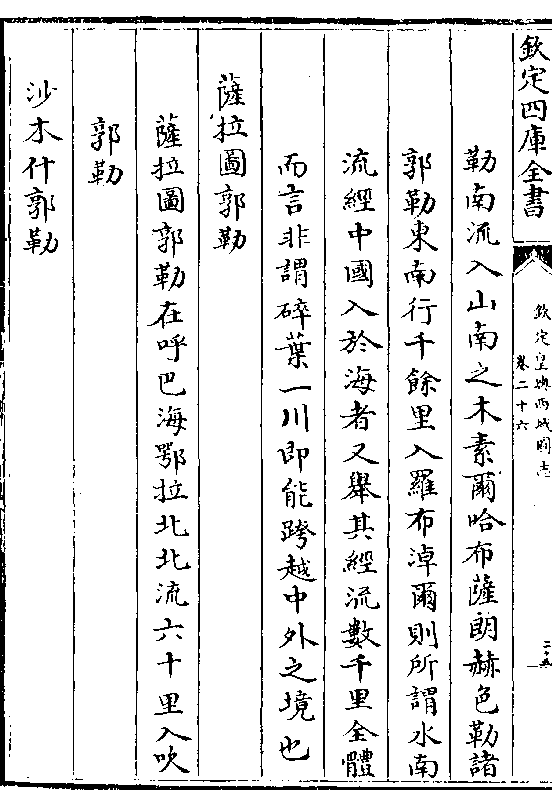 欽定四庫全書
欽定皇輿西域圖志
卷二十六
勒南流入山南之木素爾哈布薩朗赫色勒諸
郭勒東南行千餘里入羅布淖爾則所謂水南
流經中國入於海者又舉其經流數千里全體
而言非謂碎葉一川即能跨越中外之境也
薩拉圖郭勒
薩拉圖郭勒在呼巴海鄂拉北北流六十里入吹
郭勒
沙木什郭勒